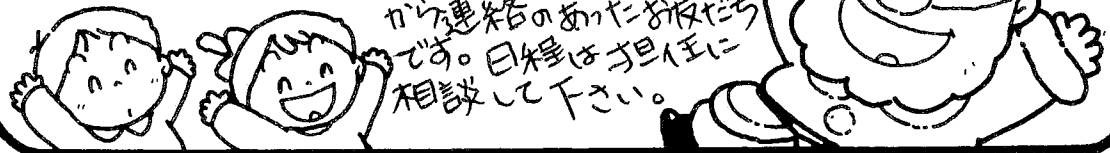 から連絡のあったお友だち
です。日程は担任に
相談して下さい。